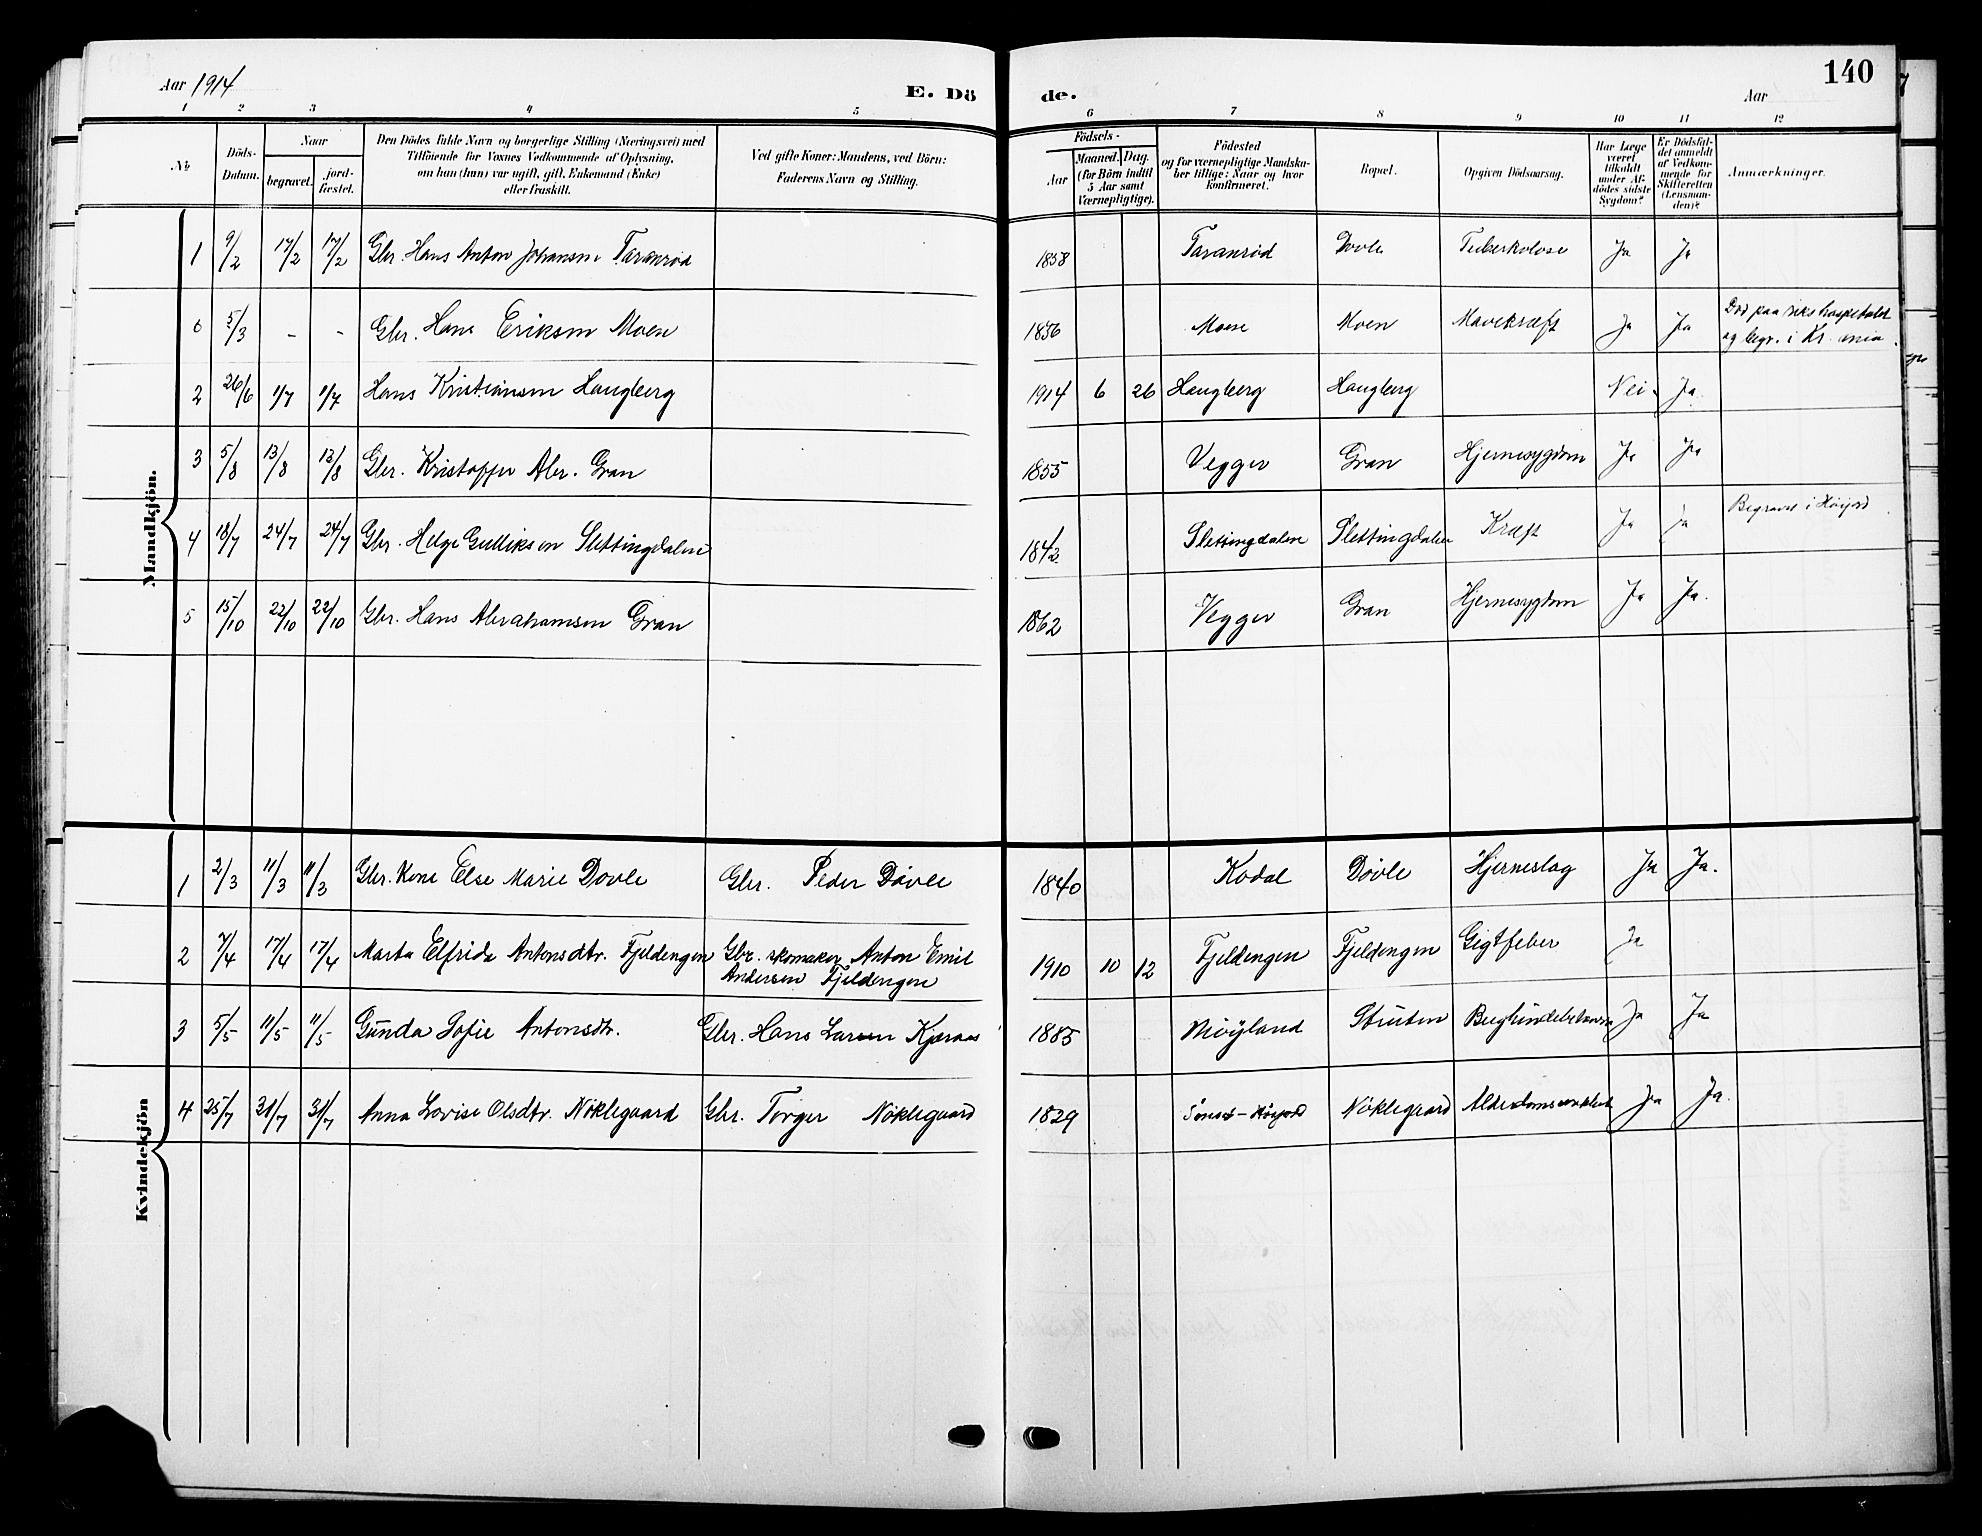 Aar 1914
E. Dö
de.
140
Aar
1 2 3 4 5 6 7 8 9 10 11 12
№
Döds-
Datum.
Naar
begravet.
jord-
fæstet.
Den Dödes fulde Navn og borgerlige Stilling (Næringsvei) med
Tilföiende for Voxnes Vedkommende af Oplysning,
om han (hun) var ugift, gift, Enkemand (Enke)
eller fraskilt.
Ved gifte Koner: Mandens, ved Börn:
Faderens Navn og Stilling.
Födsels-
Aar
Maaned. Dag.
(for Börn indtil
5 Aar samt
Værnepligtige).
Födested
og for værnepligtige Mandska-
ber tillige: Naar og hvor
konfirmeret.
Bopæl.
Opgiven Dödsaarsag.
Har Læge
været
tilkaldt
under Af-
dödes sidste
Sygdom?
Er Dödsfal-
det anmeldt
af Vedkom-
mende for
Skifteretten
(Lensman-
den)?
Anmærkninger.
Mandkjön.
1 9/2 17/2 17/2 Gbr. Hans Anton Johansen Taranrød 1858 Taranrød Dovle Tuberkolose Ja Ja
0 5/3 - - Gbr. Hans Eriksen Moen 1856 Moen Moen Mavekræft Ja Ja Död paa rikshospitalet
og begr. i Kr.ania.
2 26/6 1/7 1/7 Hans Kristiansen Haugberg 1914 6 26 Haugberg Haugberg Nei Ja
3 5/8 13/8 13/8 Gbr. Kristoffer Abr. Gran 1855 Vegger Gran Hjernesygdom Ja Ja
4 18/7 24/7 24/7 Gbr. Helge Gulliksen Slettingdalen 1842 Slettingdalen Slettingdalen Kræft Ja Ja Begravet i Høijord
5 15/10 22/10 22/10 Gbr. Hans Abrahamsen Gran 1862 Vegger Gran Hjernesygdom Ja Ja.
Kvindekjön
1 2/3 11/3 11/3 Gbr. Kone Else Marie Dovle Gbr. Peder Dövle 1840 Kodal Dövle Hjerneslag Ja Ja.
2 7/4 17/4 17/4 Marta Elfrida Antonsdtr. Fjeldengen Gbr. skomaker Anton Emil
Andersen Fjeldengen 1910 10 12 Fjeldengen Fjeldengen Gigtfeber Ja
3 5/5 11/5 11/5 Gunda Sofie Antonsdtr. Gbr. Hans Larsen Kjæraas 1885 Möyland Struten Ja Ja
4 25/7 31/7 31/7 Anna Lovise Olsdtr. Nöklegaard Gbr. Torger Nöklegaard 1829 Nöklegaard Alderdomssvakhet Ja Ja.